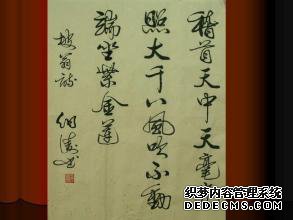 稽首天中天毫
照大千八風吹不動
端坐紫金蓮
坡翁詩
织梦内容管理系统
DEDECMS.COM